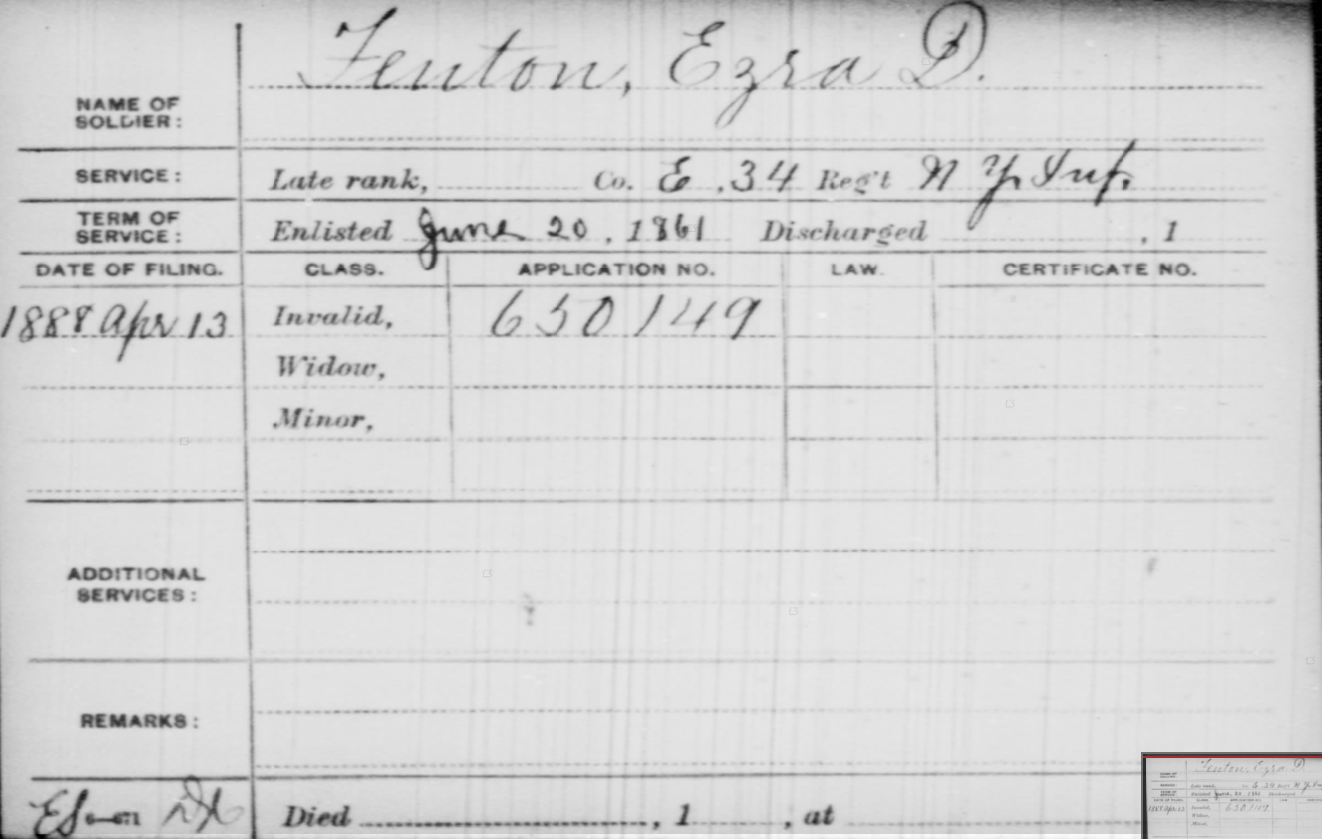 Fenton, Ezra D.
NAME OF
SOLDIER:
SERVICE: Late rank, Co. E, 34 Reg't N Y Inf.
TERM OF
SERVICE: Enlisted June 20, 1861 Discharged , 1
DATE OF FILING. CLASS. APPLICATION NO. LAW. CERTIFICATE NO.
1888 Apr 13 Invalid, 650149
Widow,
Minor,
ADDITIONAL
SERVICES:
REMARKS:
Died , 1 , at